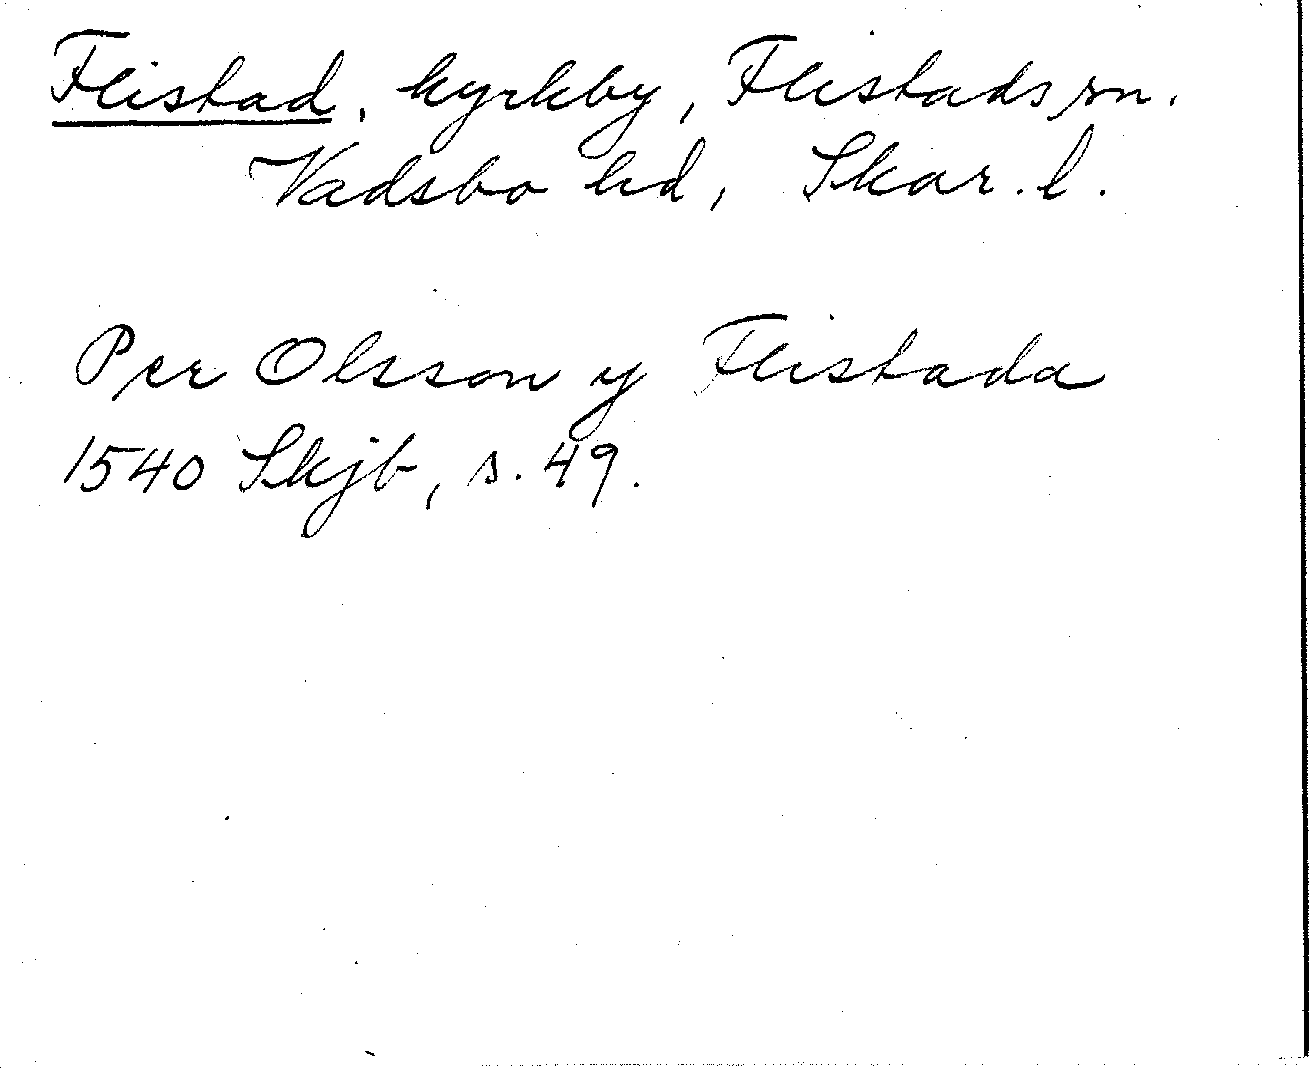 Flistad, kyrkby, Flistads sn.
Vadsbo hd, Skar. l.
Per Olsson y Flistada
1540 Skjb, s. 49.